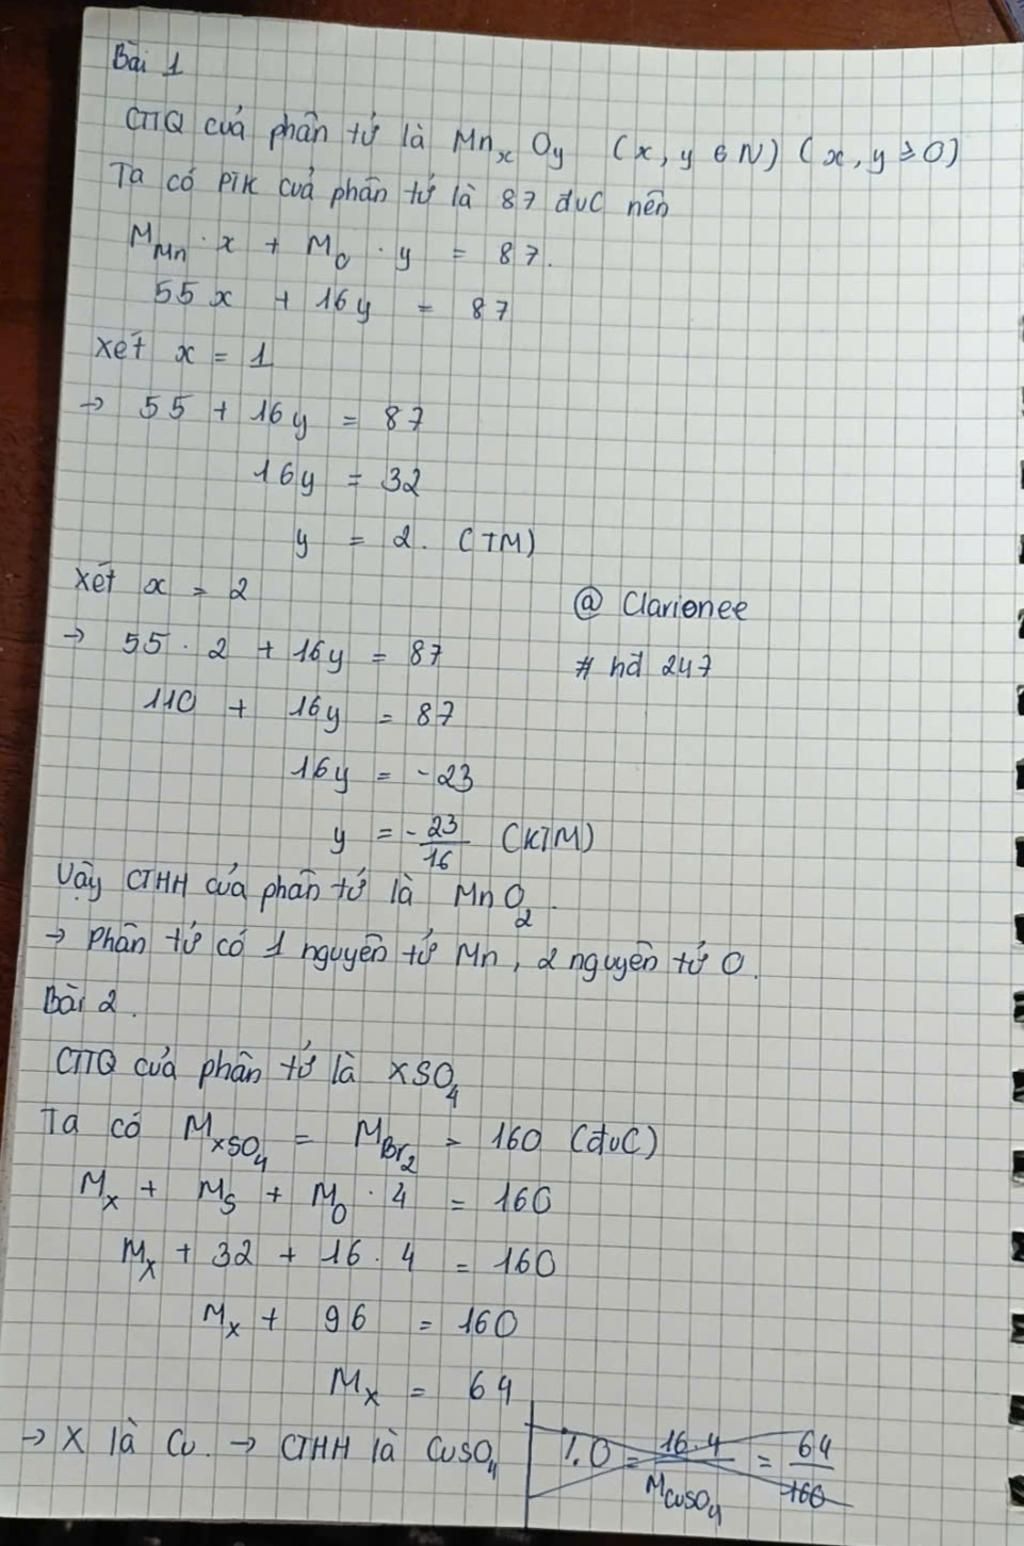 Bài 1
CTTQ của phân tử là MnₓOy (x, y ∈ N) (x, y ≥ 0)
Ta có PTK của phân tử là 87 đvC nên
M_Mn · x + M_O · y = 87.
55x + 16y = 87
Xét x = 1
→ 55 + 16y = 87
16y = 32
y = 2. (TM)
Xét x = 2
@ Clarionee
→ 55 · 2 + 16y = 87
# hđ 247
110 + 16y = 87
16y = -23
y = -23/16 (KTM)
Vậy CTHH của phân tử là MnO₂.
→ Phân tử có 1 nguyên tử Mn, 2 nguyên tử O.
Bài 2.
CTTQ của phân tử là XSO₄
Ta có M_XSO₄ = M_Br₂ = 160 (đvC)
M_X + M_S + M_O · 4 = 160
M_X + 32 + 16 · 4 = 160
M_X + 96 = 160
M_X = 64
→ X là Cu. → CTHH là CuSO₄
%O = 16.4/M_CuSO₄ = 64/160